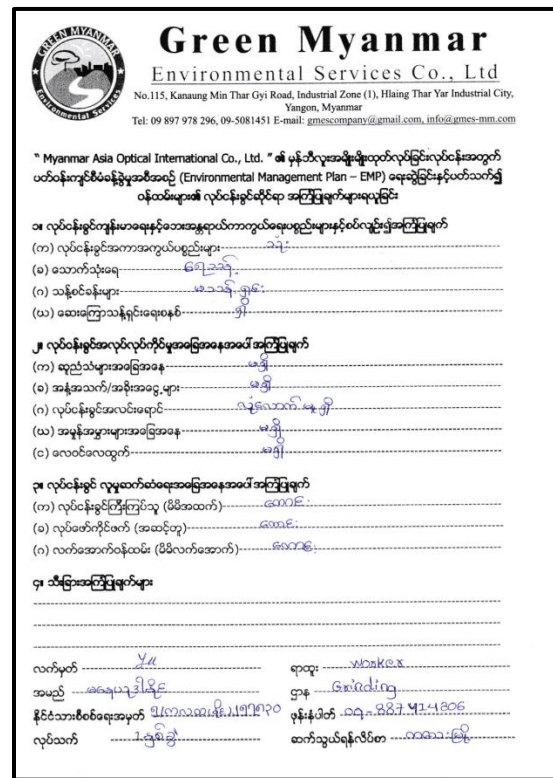 GREEN MYANMAR
Environmental Services
Green Myanmar
Environmental Services Co., Ltd
No.115, Kanaung Min Thar Gyi Road, Industrial Zone (1), Hlaing Thar Yar Industrial City,
Yangon, Myanmar
Tel: 09 897 978 296, 09-5081451 E-mail: gmescompany@gmail.com, info@gmes-mm.com
" Myanmar Asia Optical International Co., Ltd. " ၏ မှန်ဘီလူးအမျိုးမျိုးထုတ်လုပ်ခြင်းလုပ်ငန်းအတွက်
ပတ်ဝန်းကျင်စီမံခန့်ခွဲမှုအစီအစဉ် (Environmental Management Plan – EMP) ရေးဆွဲခြင်းနှင့်ပတ်သက်၍
ဝန်ထမ်းများ၏ လုပ်ငန်းခွင်ဆိုင်ရာ အကြံပြုချက်များရယူခြင်း
၁။ လုပ်ငန်းခွင်ကျန်းမာရေးနှင့်ဘေးအန္တရာယ်ကာကွယ်ရေးပစ္စည်းများနှင့်စပ်လျဉ်း၍အကြံပြုချက်
(က) လုပ်ငန်းခွင်အကာအကွယ်ပစ္စည်းများ
(ခ) သောက်သုံးရေ ရေသန့်
(ဂ) သန့်စင်ခန်းများ မသန့်ရှင်း
(ဃ) ဆေးကြောသန့်ရှင်းရေးစနစ် ရှိ
၂။ လုပ်ငန်းခွင်အလုပ်လုပ်ကိုင်မှုအခြေအနေအပေါ်အကြံပြုချက်
(က) ဆူညံသံများအခြေအနေ မရှိ
(ခ) အနံ့အသက်/အခိုးအငွေ့များ မရှိ
(ဂ) လုပ်ငန်းခွင်အလင်းရောင် လုံလောက်မှု ရှိ
(ဃ) အမှုန်အမွှားများအခြေအနေ မရှိ
(င) လေဝင်လေထွက် မရှိ
၃။ လုပ်ငန်းခွင် လူမှုဆက်ဆံရေးအခြေအနေအပေါ်အကြံပြုချက်
(က) လုပ်ငန်းခွင်ကြီးကြပ်သူ (မိမိအထက်) ကောင်း
(ခ) လုပ်ဖော်ကိုင်ဖက် (အဆင့်တူ) ကောင်း
(ဂ) လက်အောက်ဝန်ထမ်း (မိမိလက်အောက်) ကောင်း
၄။ သီးခြားအကြံပြုချက်များ
လက်မှတ် Yu
ရာထူး worker
အမည်
ဌာန Grinding
နိုင်ငံသားစိစစ်ရေးအမှတ်
ဖုန်းနံပါတ် 09-887414806
လုပ်သက် ၁ နှစ်ခွဲ
ဆက်သွယ်ရန်လိပ်စာ